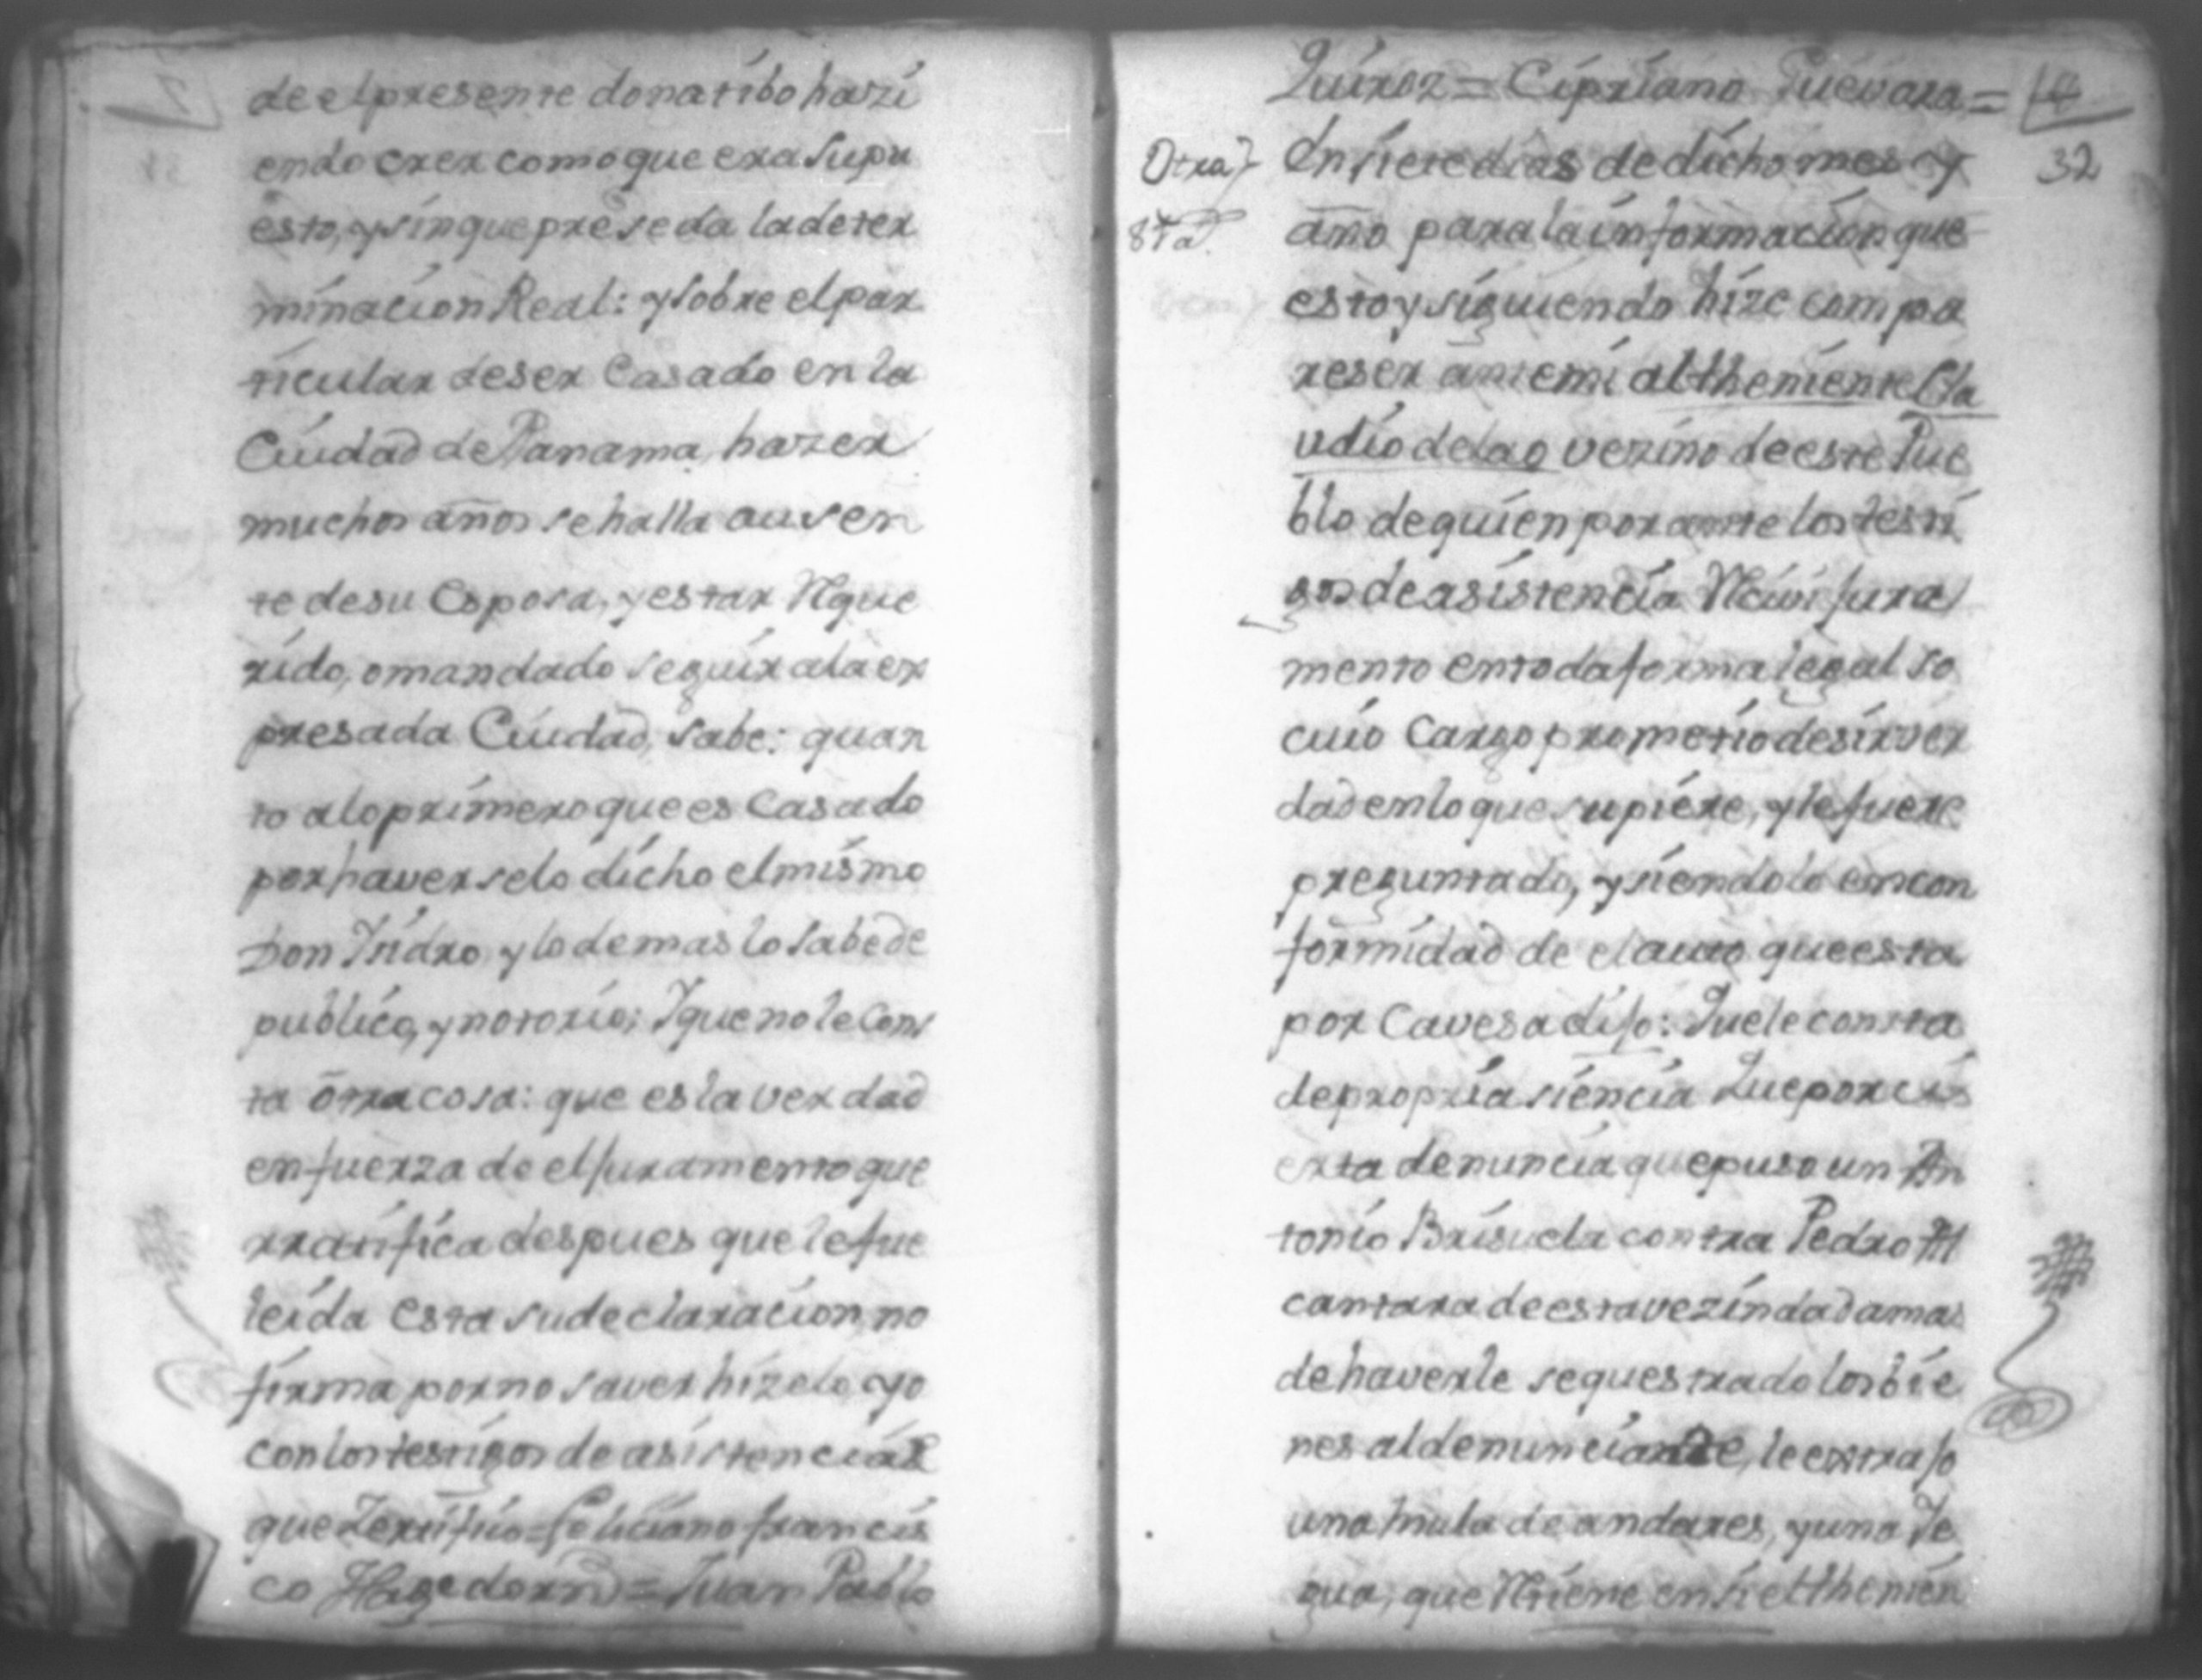 de el presente donatibo hazi
endo crer como que era supu
esto, y sin que preseda la deter
minacion Real: y sobre el par
ticular de ser Casado en la
Ciudad de Panama, hazer
muchos años se halla ausen
te de su Esposa, y estar Reque
rido, o mandado seguir a la ex
presada Ciudad, sabe: quan
to a lo primero que es Casado
por haverselo dicho el mismo
Don Isidro y lo demas lo sabe de
publico, y notorio; Y que no le Cons
ta otra cosa: que es la verdad
en fuerza de el juramento que
rratifica despues que le fue
leida esta su declaracion no
firma por no saver hizelo yo
con los testigos de asistencia
que Zertifico = Feliciano Francis
co Hagedorn = Juan Pablo
Quiroz = Cipriano Guevara =
32
Otra
8ta
En siete dias de dicho mes y
año para la informacion que
estoy siguiendo hize compa
reser ante mi al theniente Cla
udio de Lao vezino de este Pue
blo de quien por ante los testi
gos de asistencia Recivi jura
mento en toda forma legal so
cuio Cargo prometio desir ver
dad en lo que supiere, y le fuere
preguntado, y siendolo en con
formidad de el auto que esta
por Cavesa dijo: Que le consta
de propria siencia Que por
denuncia que puso un An
tonio Brisuela contra Pedro Al
cantara de esta vezindad a mas
de haverle sequestrado los bie
nes al denunciante, le extrajo
una mula de andares, y una Ye
gua, que Retiene en si el thenien